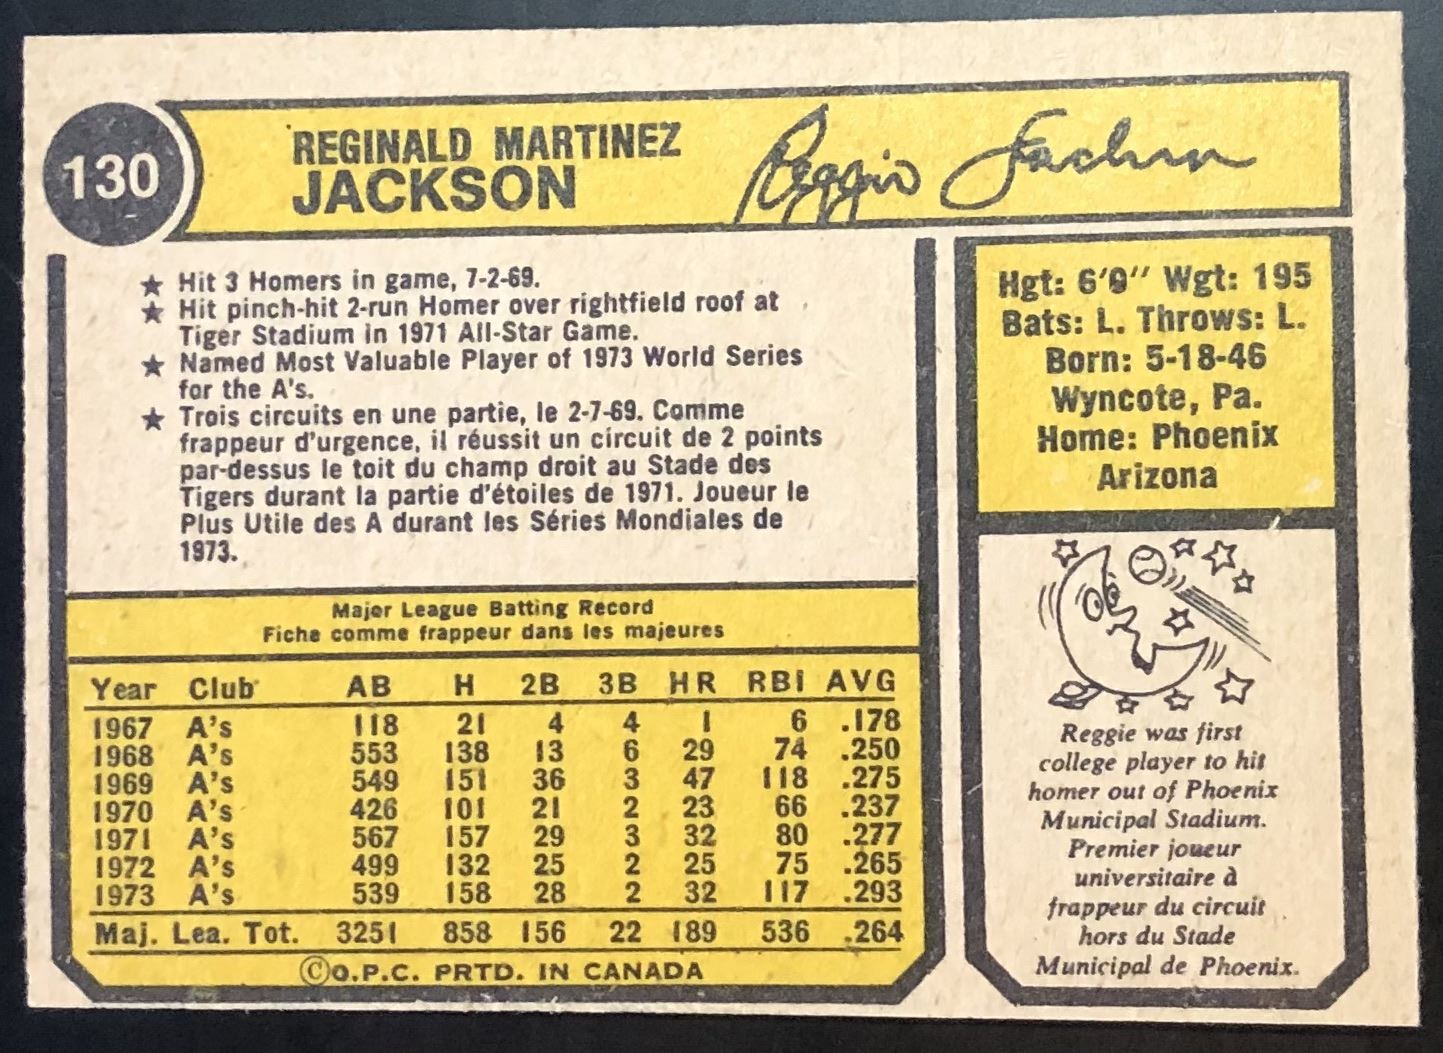 130
REGINALD MARTINEZ
JACKSON
Reggie Jackson
★ Hit 3 Homers in game, 7-2-69.
★ Hit pinch-hit 2-run Homer over rightfield roof at
Tiger Stadium in 1971 All-Star Game.
★ Named Most Valuable Player of 1973 World Series
for the A's.
★ Trois circuits en une partie, le 2-7-69. Comme
frappeur d'urgence, il réussit un circuit de 2 points
par-dessus le toit du champ droit au Stade des
Tigers durant la partie d'étoiles de 1971. Joueur le
Plus Utile des A durant les Séries Mondiales de
1973.
Major League Batting Record
Fiche comme frappeur dans les majeures
Year Club AB H 2B 3B HR RBI AVG
1967 A's 118 21 4 4 1 6 .178
1968 A's 553 138 13 6 29 74 .250
1969 A's 549 151 36 3 47 118 .275
1970 A's 426 101 21 2 23 66 .237
1971 A's 567 157 29 3 32 80 .277
1972 A's 499 132 25 2 25 75 .265
1973 A's 539 158 28 2 32 117 .293
Maj. Lea. Tot. 3251 858 156 22 189 536 .264
©O.P.C. PRTD. IN CANADA
Hgt: 6'0" Wgt: 195
Bats: L. Throws: L.
Born: 5-18-46
Wyncote, Pa.
Home: Phoenix
Arizona
Reggie was first
college player to hit
homer out of Phoenix
Municipal Stadium.
Premier joueur
universitaire à
frappeur du circuit
hors du Stade
Municipal de Phoenix.